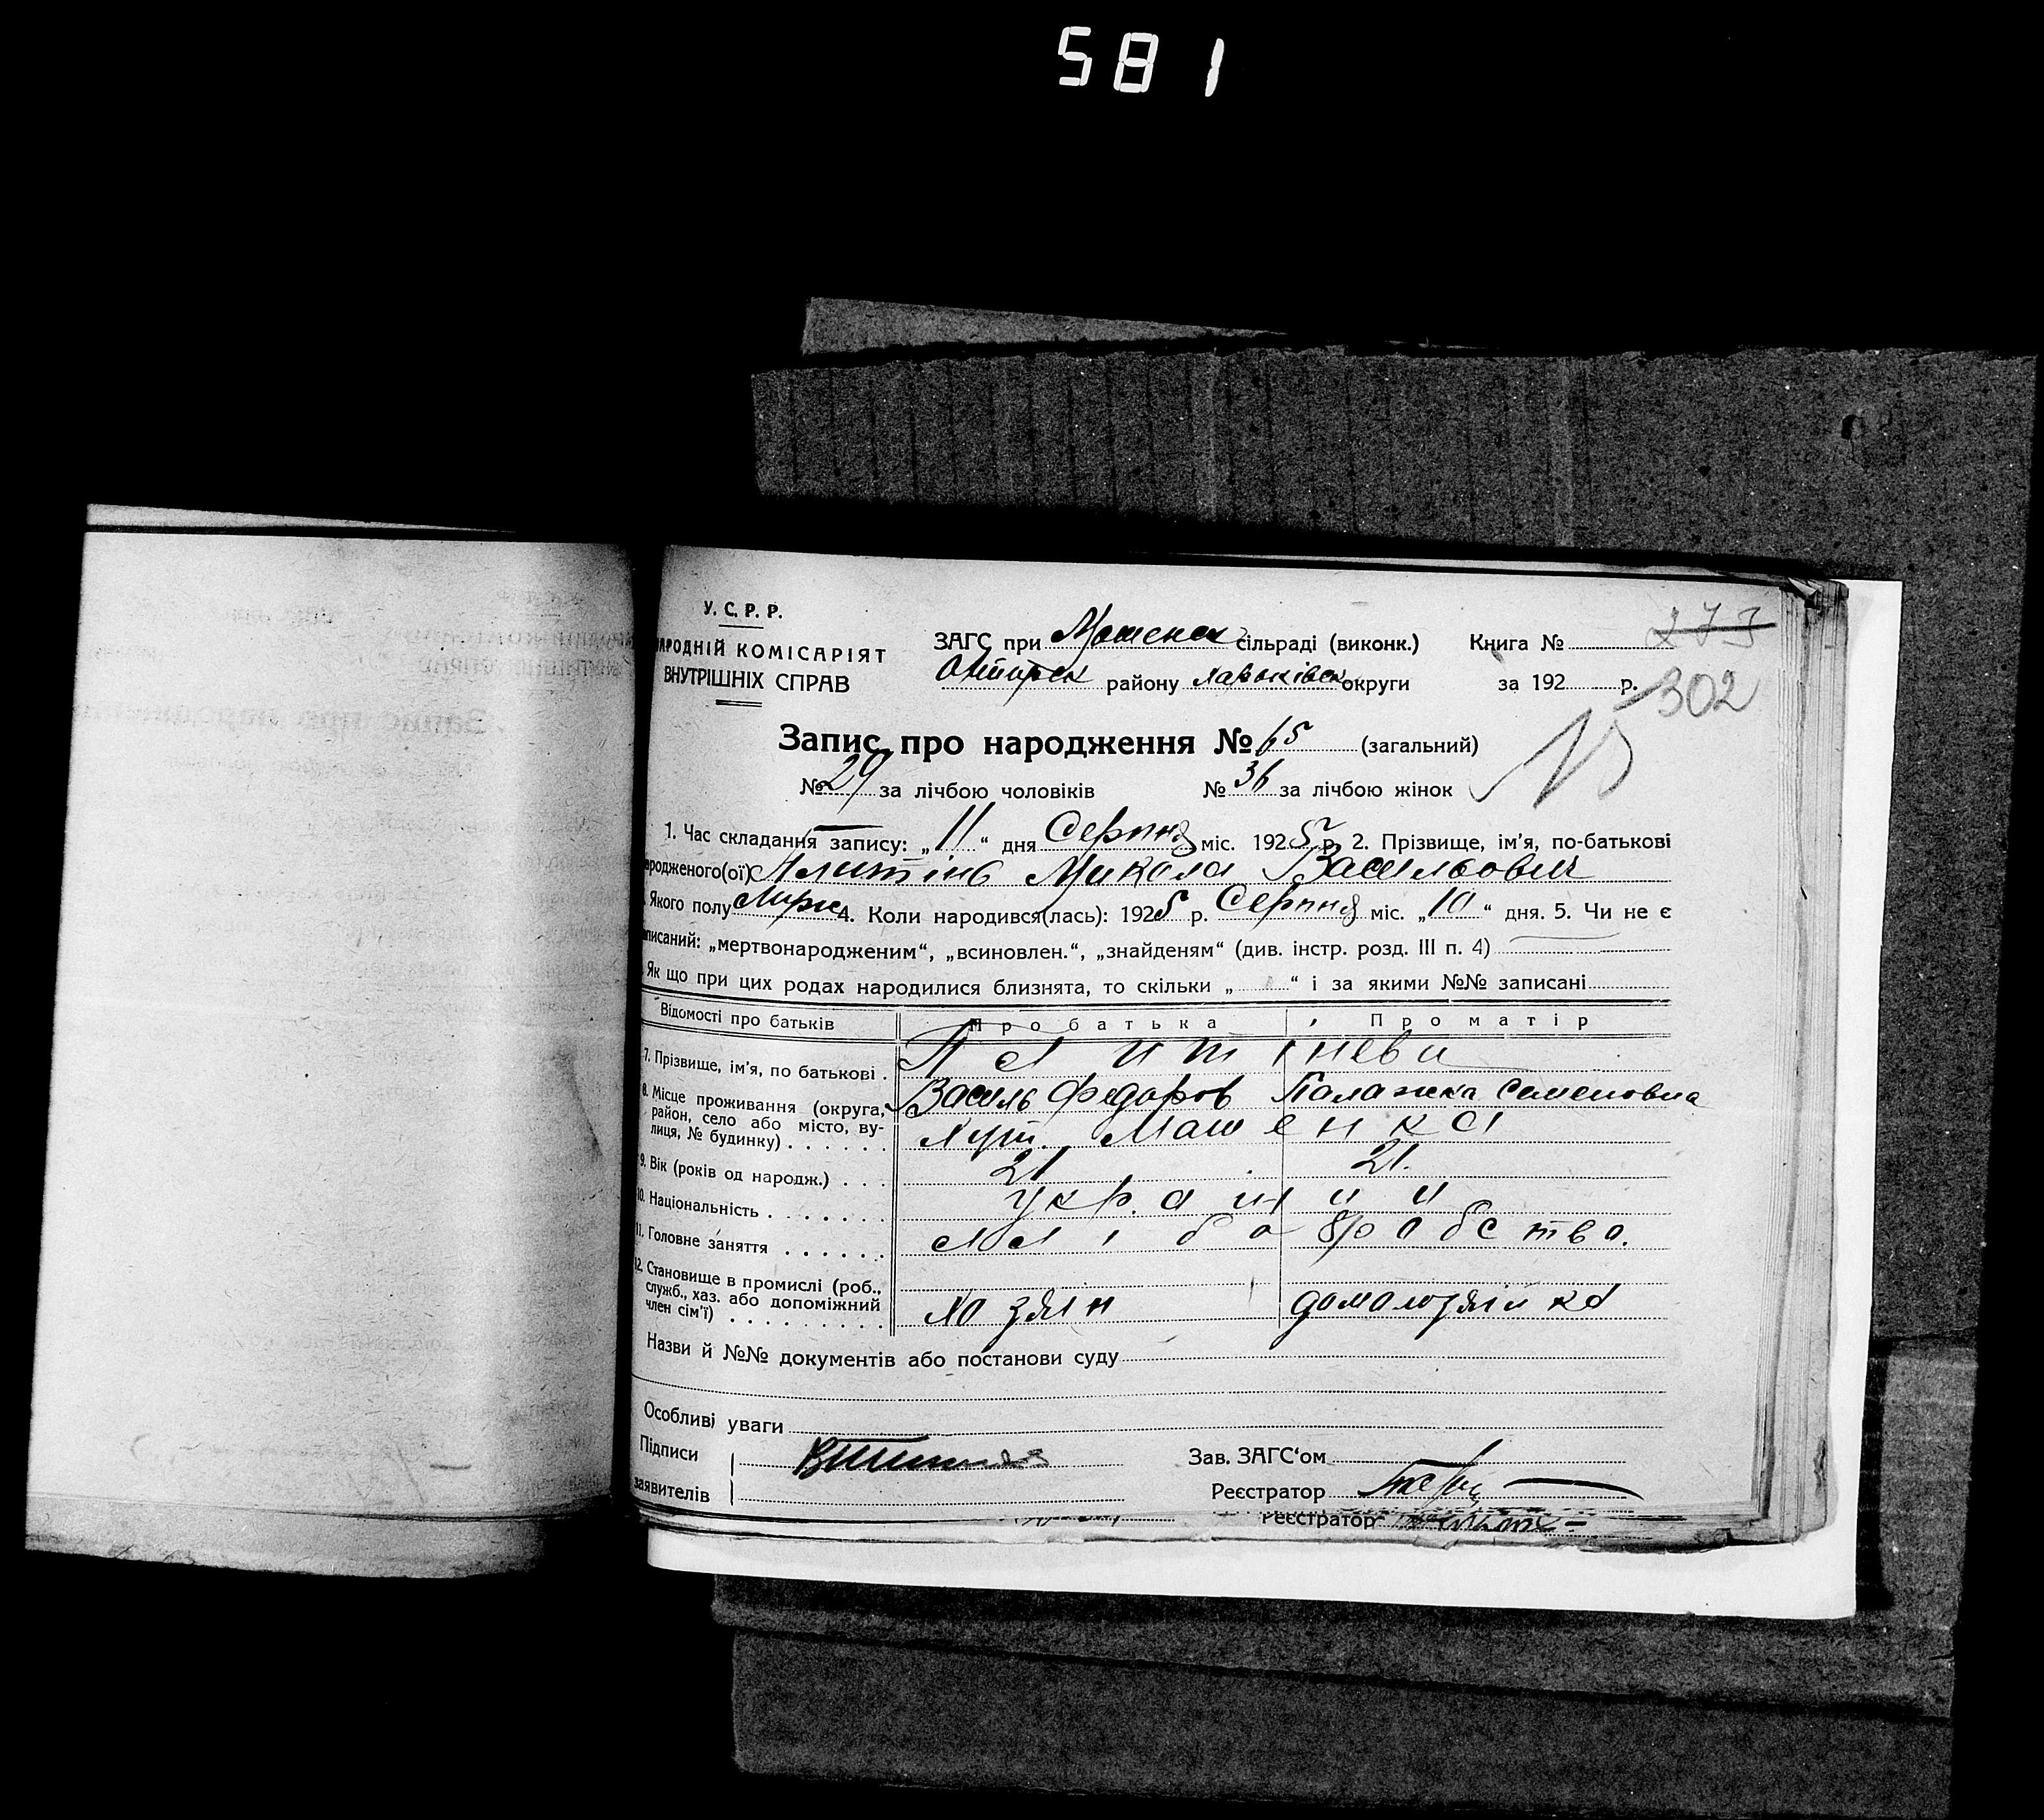 581
У. С. Р. Р.
НАРОДНІЙ КОМІСАРІЯТ
ВНУТРІШНІХ СПРАВ
ЗАГС при Мошенск сільраді (виконк.) Книга № 273
району Харьківск округи за 192 р. 302
Запис про народження № 65 (загальний)
№ 29 за лічбою чоловіків № 36 за лічбою жінок 15
1. Час складання запису: „11“ дня Серпня міс. 1925 р. 2. Прізвище, ім'я, по-батькові
народженого(ої) Микола Васильович
Якого полу 4. Коли народився(лась): 1925 р. Серпня міс. „10“ дня. 5. Чи не є
записаний: „мертвонародженим“, „всиновлен.“, „знайденям“ (див. інстр. розд. III п. 4)
Як що при цих родах народилися близнята, то скільки „ “ і за якими №№ записані
Відомості про батьків Про батька Про матір
7. Прізвище, ім'я, по батькові
Василь Федоров Палажка Семеновна
8. Місце проживання (округа, район, село або місто, вулиця, № будинку) хут. Машенка
9. Вік (років од народж.) 21 21.
10. Національність україн ц и
11. Головне заняття хліборобство.
12. Становище в промислі (роб., служб., хаз. або допоміжний член сім'ї) хозяін домохозяйка
Назви й №№ документів або постанови суду
Особливі уваги
Підписи
заявителів
Зав. ЗАГС'ом
Реєстратор
Реєстратор